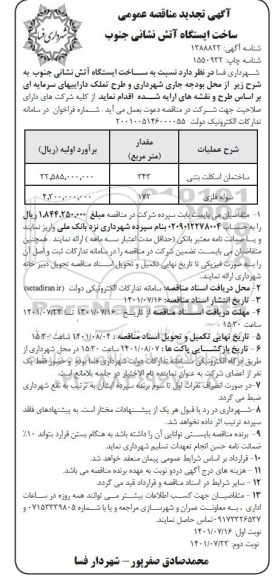 آگهی تجدید مناقصه عمومی
ساخت ایستگاه آتش نشانی جنوب
شناسه آگهی: ۱۳۸۸۸۲۲
شناسه چاپ: ۱۵۵۰۹۳۲
شهرداری فسا
شهرداری فسا در نظر دارد نسبت به ساخت ایستگاه آتش نشانی جنوب به
شرح زیر از محل بودجه جاری شهرداری و طرح تملک داراییهای سرمایه ای
بر اساس طرح و نقشه های ارایه شده اقدام نماید. از کلیه شرکت های دارای
صلاحیت جهت شرکت در مناقصه دعوت بعمل می آید. شماره فراخوان در سامانه
تدارکات الکترونیک دولت ۲۰۰۱۰۰۵۱۴۶۰۰۰۰۵۵
شرح عملیات | مقدار (متر مربع) | برآورد اولیه (ریال)
ساختمان اسکلت بتنی | ۳۴۳ | ۳۲,۵۸۵,۰۰۰,۰۰۰
سوله فلزی | ۱۷۲ | ۴,۳۰۰,۰۰۰,۰۰۰
۱- متقاضیان می بایست بابت سپرده شرکت در مناقصه مبلغ ۱,۸۴۴,۲۵۰,۰۰۰ ریال
را به حساب ۰۲۰۹۰۱۲۲۷۸۰۰۴ بنام سپرده شهرداری نزد بانک ملی واریز نمایند
و یا ضمانت نامه معتبر بانکی (حداقل مدت اعتبار سه ماهه) ارائه نمایند. همچنین
متقاضیان می بایست تضمین شرکت در مناقصه را در سامانه تدارکات ثبت و اصل آن
را به صورت فیزیکی تا تاریخ نهایی تکمیل و تحویل اسناد مناقصه تحویل دبیر خانه
شهرداری ارائه نمایند.
۲- محل دریافت اسناد مناقصه: سامانه تدارکات الکترونیکی دولت (setadiran.ir)
۳- تاریخ انتشار اسناد مناقصه: ۱۴۰۱/۰۷/۱۶
۴- مهلت دریافت اسناد مناقصه از تاریخ ۱۴۰۱/۰۷/۱۶ تا ۱۴۰۱/۰۷/۲۳
ساعت ۱۵:۳۰
۵- تاریخ نهایی تکمیل و تحویل اسناد مناقصه: ۱۴۰۱/۰۸/۰۴ ساعت ۱۵:۳۰
۶- تاریخ بازگشایی پاکت ها: ۱۴۰۱/۰۸/۰۷ ساعت ۱۵:۳۰ در محل شهرداری از
طریق درگاه الکترونیکی سامانه تدارکات دولت شهرداری فسا بوده و حضور فقط یک
نفر از اعضای شرکت به عنوان نماینده تام الاختیار در جلسه بلامانع است.
۷- در صورت انصراف نفرات اول تا سوم برنده سپرده ایشان به ترتیب به نفع شهرداری
ضبط می گردد.
۸- شهرداری در رد یا قبول هر یک از پیشنهادات مختار است. به پیشنهادهای فاقد
سپرده ترتیب اثر داده نخواهد شد.
۹- برنده مناقصه بایستی توانایی آن را داشته باشد به هنگام بستن قرارد بتواند ۱۰٪
ضمانت نامه حسن انجام تعهدات تسلیم شهرداری نماید.
۱۰- قرارداد بر اساس شرایط عمومی پیمان منعقد خواهد شد.
۱۱- هزینه های درج آگهی دردو نوبت به عهده برنده مناقصه می باشد.
۱۲- سایر شرایط در اسناد مناقصه و قرارداد قید می گردد.
۱۳- متقاضیان جهت کسب اطلاعات بیشتر می توانند همه روزه در ساعات
اداری، به معاونت عمران و شهرسازی مراجعه و یا با شماره ۰۷۱۵۳۳۳۹۸۰۵ و
۰۹۱۷۳۳۲۶۵۳۷ تماس حاصل نمایند.
نوبت اول: ۱۴۰۱/۰۷/۱۶
نوبت دوم: ۱۴۰۱/۰۷/۲۳
محمدصادق صفرپور - شهردار فسا